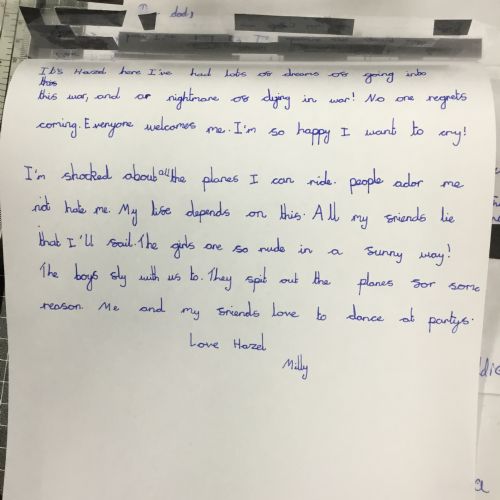 dads
It's Hazel here I've had lots of dreams of going into
this
this war, and a nightmare of dying in war! No one regrets
coming. Everyone welcomes me. I'm so happy I want to cry!
I'm shocked about all the planes I can ride. people ador me
not hate me. My life depends on this. All my friends lie
that I'll fail. The girls are so rude in a funny way!
The boys fly with us to. They spit out the planes for some
reason. Me and my friends love to dance at partys.
Love Hazel
Milly